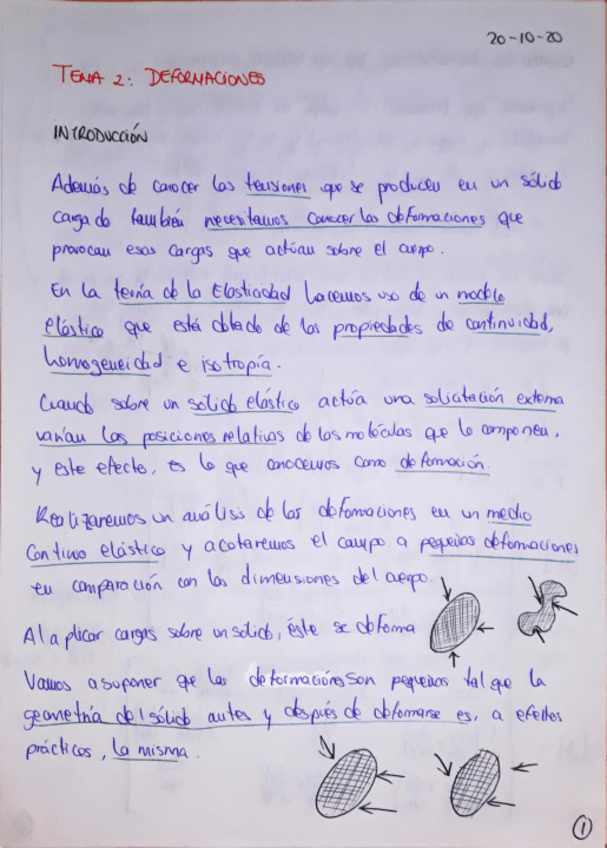 20-10-20
TEMA 2: DEFORMACIONES
INTRODUCCIÓN
Además de conocer las tensiones que se producen en un sólido
cargado también necesitamos conocer las deformaciones que
provocan esas cargas que actúan sobre el cuerpo.
En la teoría de la Elasticidad hacemos uso de un modelo
elástico que está dotado de las propiedades de continuidad,
homogeneidad e isotropía.
Cuando sobre un sólido elástico actúa una solicitación externa
varían las posiciones relativas de las moléculas que lo componen,
y este efecto, es lo que conocemos como deformación.
Realizaremos un análisis de las deformaciones en un medio
continuo elástico y acotaremos el campo a pequeñas deformaciones
en comparación con las dimensiones del cuerpo.
Al aplicar cargas sobre un sólido, éste se deforma
Vamos a suponer que las deformaciones son pequeñas tal que la
geometría del sólido antes y después de deformarse es, a efectos
prácticos, la misma.
1